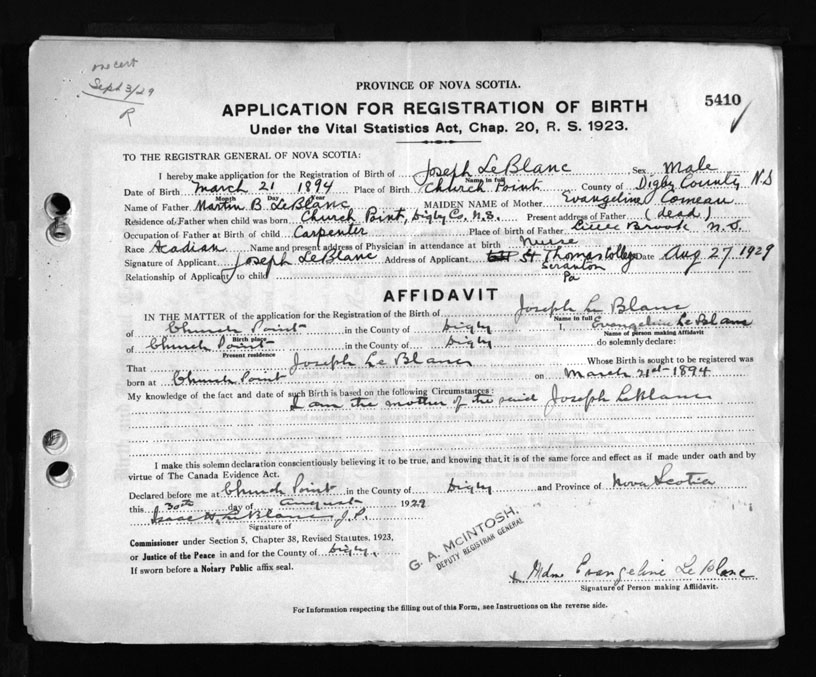 one cert
Sept 3/29
R
PROVINCE OF NOVA SCOTIA.
5410
APPLICATION FOR REGISTRATION OF BIRTH
Under the Vital Statistics Act, Chap. 20, R. S. 1923.
TO THE REGISTRAR GENERAL OF NOVA SCOTIA:
I hereby make application for the Registration of Birth of Joseph LeBlanc Sex Male
Name in full
Date of Birth March 21 1894 Place of Birth Church Point County of Digby County N.S
Month Day Year
Name of Father Martin B. LeBlanc MAIDEN NAME of Mother Evangeline Comeau
Residence of Father when child was born Church Point, Digby Co. N.S. Present address of Father (dead)
Occupation of Father at Birth of child Carpenter Place of birth of Father Little Brook N.S.
Race Acadian Name and present address of Physician in attendance at birth Nurse
Signature of Applicant Joseph LeBlanc Address of Applicant St Thomas College Date Aug 27 1929
Scranton
Relationship of Applicant to child Pa
AFFIDAVIT
IN THE MATTER of the application for the Registration of the Birth of Joseph Le Blanc
Name in full
of Church Point in the County of Digby I, Evangeline Le Blanc
Birth place Name of person making Affidavit
of Church Point in the County of Digby do solemnly declare:
Present residence
That Joseph Le Blanc Whose Birth is sought to be registered was
born at Church Point on March 21st 1894
My knowledge of the fact and date of such Birth is based on the following Circumstances:
I am the mother of the said Joseph LeBlanc
I make this solemn declaration conscientiously believing it to be true, and knowing that it is of the same force and effect as if made under oath and by
virtue of The Canada Evidence Act.
Declared before me at Church Point in the County of Digby and Province of Nova Scotia
this 30th day of August 1929
Isaac LeBlanc J.P.
Signature of
Commissioner under Section 5, Chapter 38, Revised Statutes, 1923,
or Justice of the Peace in and for the County of Digby.
If sworn before a Notary Public affix seal.
G. A. McINTOSH.
DEPUTY REGISTRAR GENERAL
x Mdm Evangeline Le Blanc
Signature of Person making Affidavit.
For Information respecting the filling out of this Form, see Instructions on the reverse side.